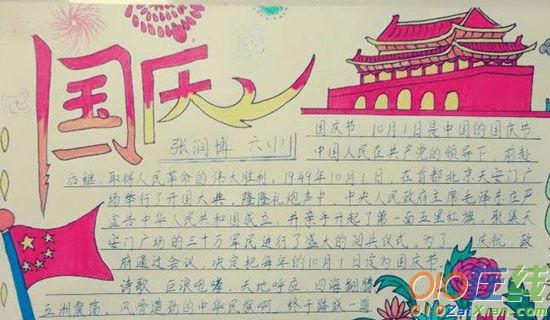 国庆
张润博 六(1)
国庆节,10月1日是中国的国庆节,
中国人民在共产党的领导下,前赴
后继,取得人民革命的伟大胜利,1949年10月1日,在首都北京天安门广
场举行了开国大典,隆隆礼炮声中,中央人民政府主席毛泽东在严
宣告中华人民共和国成立,并亲手升起了第一面五星红旗,聚集天
安门广场的三十万军民进行了盛大的阅兵仪式,为了 庆祝,政
府通过会议,决定把每年的10月1日定为国庆节。
诗歌:巨浪咆哮,天地呼应,四海翻腾
五洲震荡,风雷激动的中华民族啊 终于
在线
ZaiXian.com